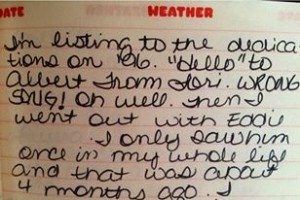 DATE WEATHER
Im listing to the dedica
tions on '96. "Hello" to
Albert from Lori. WRONG
SONG! Oh well. Then I
went out with Eddie
. I only saw him
once in my whole life
and that was about
4 months ago. I